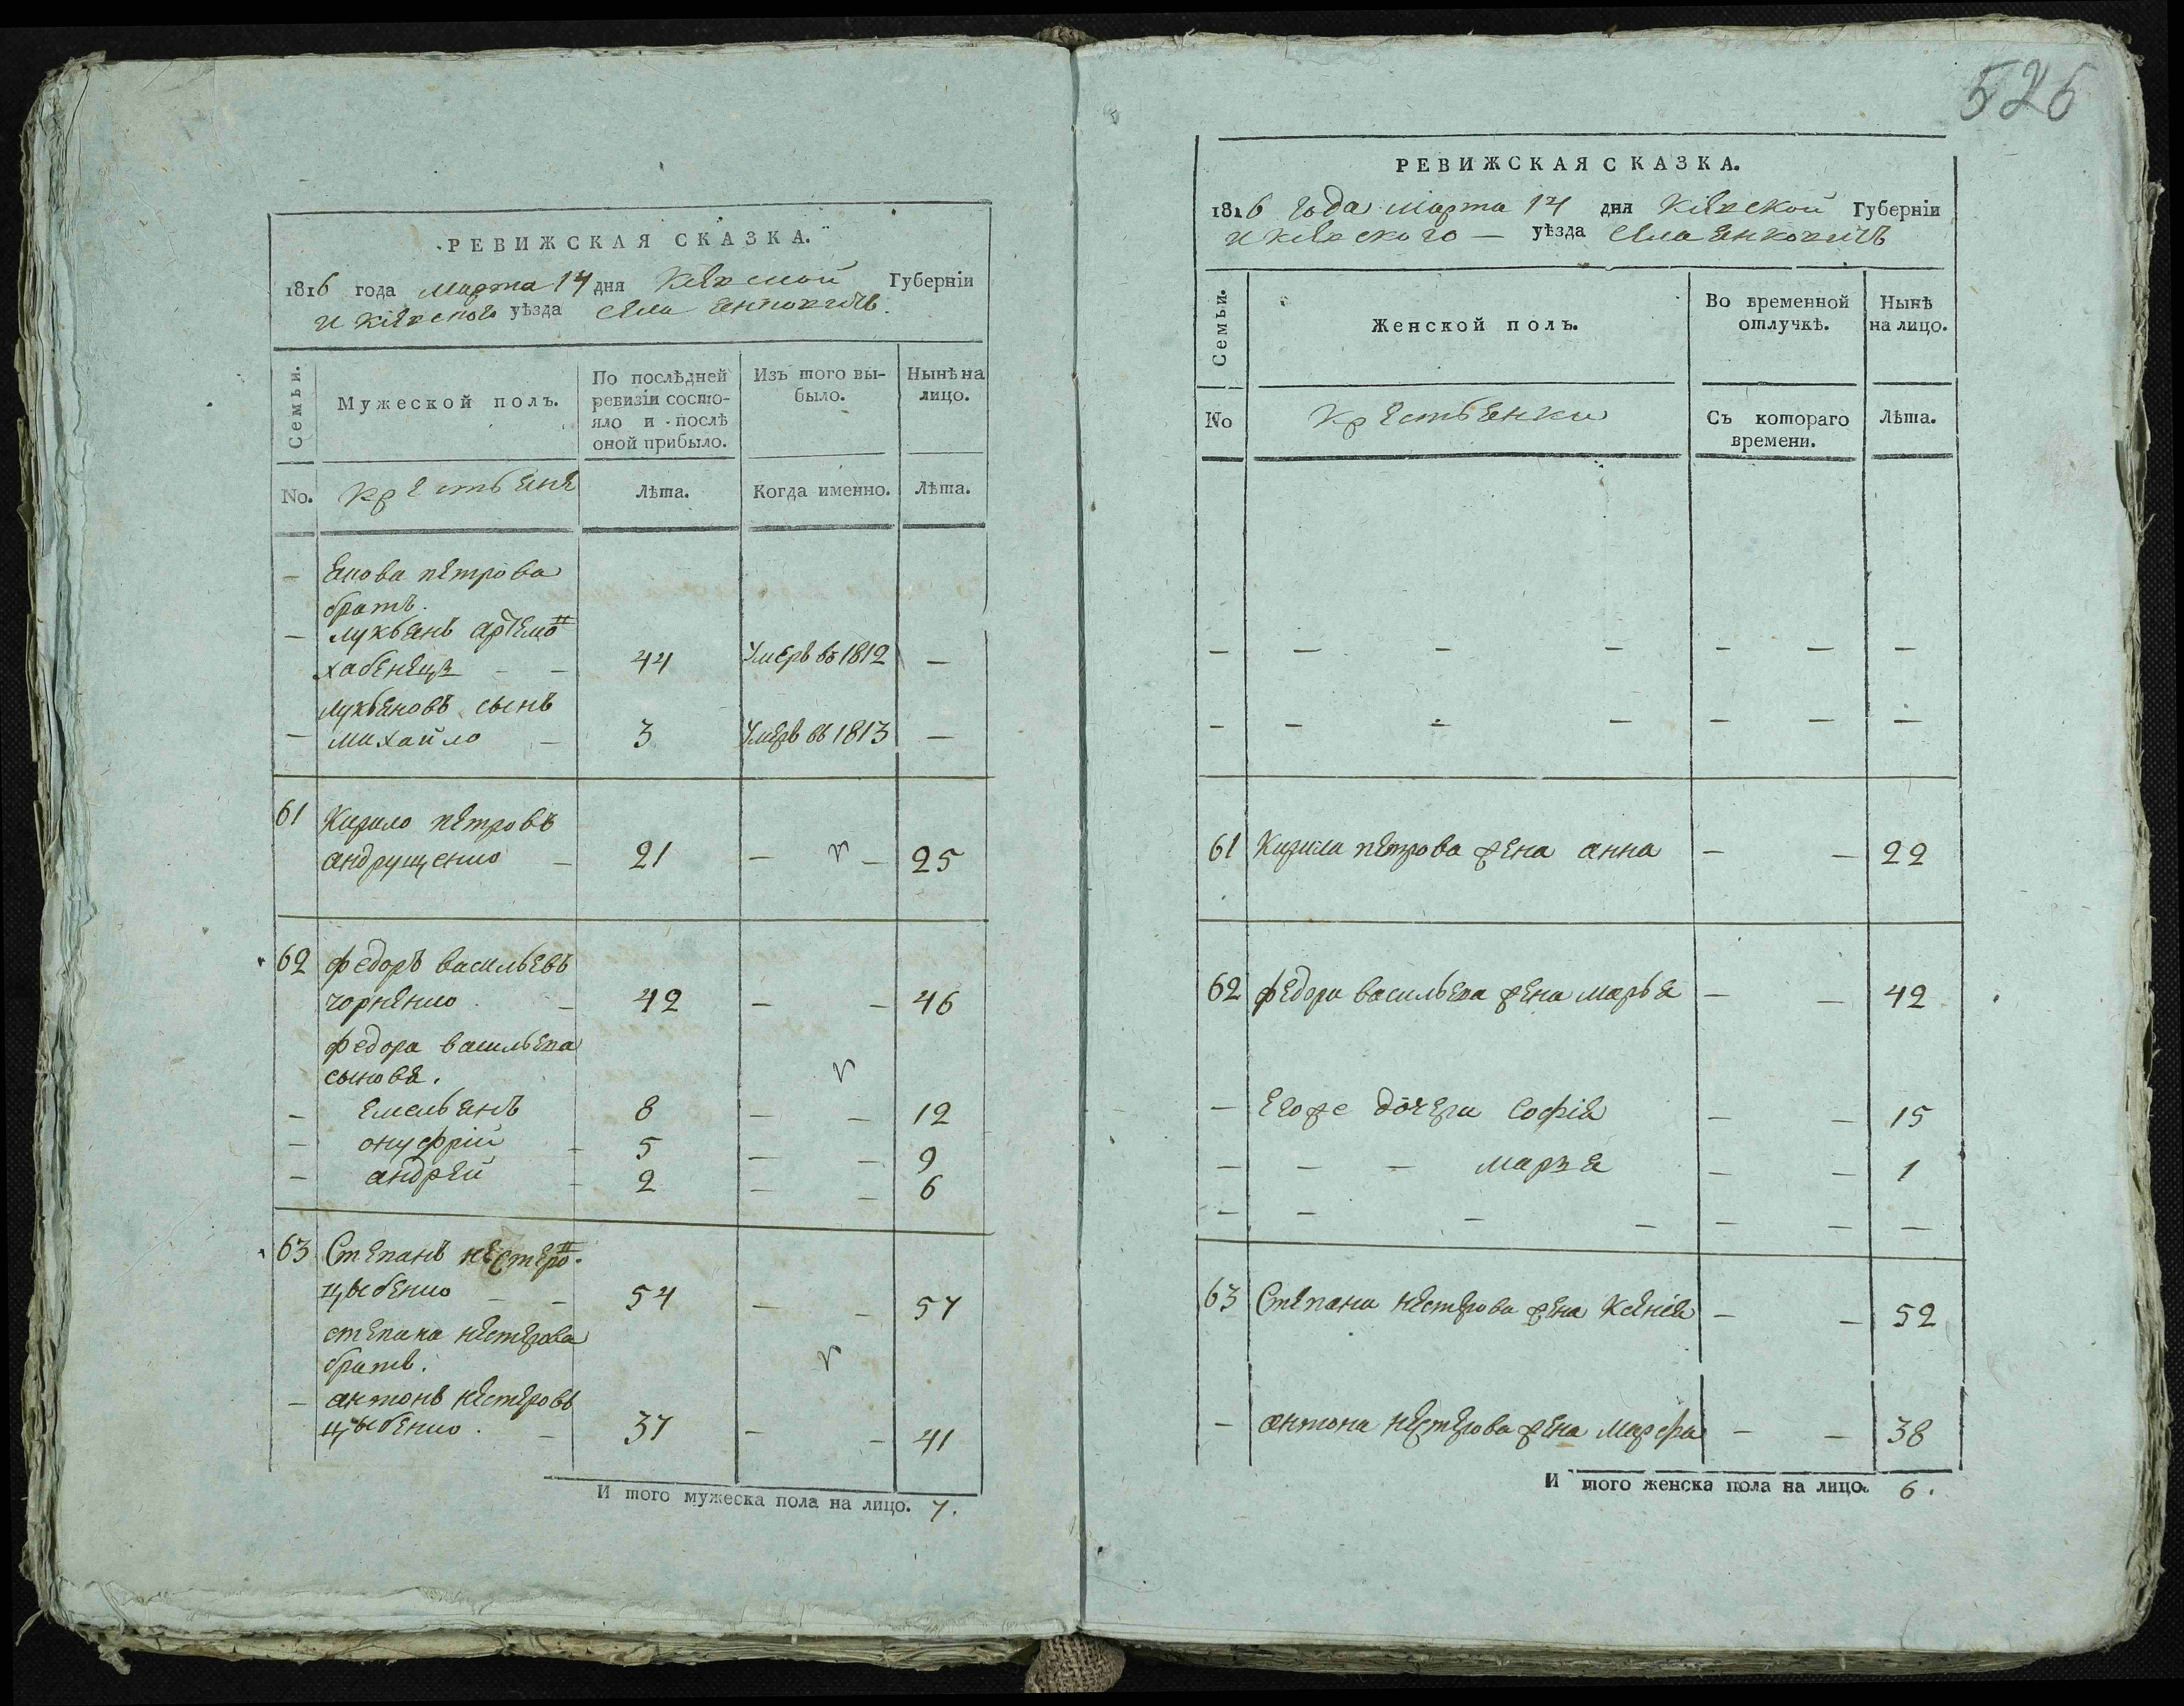 РЕВИЖСКАЯ СКАЗКА.
1816 года марта 14 дня Кіевской Губерніи
и Кіевского уѣзда села Янковичь.
Семьи.
Мужеской полъ.
По послѣдней ревизіи состояло и послѣ оной прибыло.
Изъ того выбыло.
Нынѣ на лицо.
No.
крестьяне
Лѣта.
Когда именно.
Лѣта.
– Якова петрова
братъ.
– лукьянъ артемо
хабенецъ – – 44 Умеръ въ 1812 –
лукьяновъ сынъ
– михайло – 3 Умеръ въ 1813 –
61 Кирило петровъ
андрущенко – 21 – – 25
62 федоръ васильевъ
чорненко – 42 – – 46
федора васильева
сыновя.
– емельянъ 8 – – 12
– онуфрій – 5 – – 9
– андрей – 2 – – 6
63 Степанъ нестеро
цыбенко – – 54 – – 57
степана нестерова
братъ.
– антонъ нестеровъ
цыбенко. – 37 – – 41
И того мужеска пола на лицо. 7.
526
РЕВИЖСКАЯ СКАЗКА.
1816 года марта 14 дня Кіевской Губерніи
и Кіевского – уѣзда села Янковичь
Семьи.
Женской полъ.
Во временной отлучкѣ.
Нынѣ на лицо.
No
крестьянки
Съ котораго времени.
Лѣта.
– – – – – – –
– – – – – – –
61 Кирила петрова жена анна – – 22
62 федора васильева жена марья – – 42
– Егоже дочери Софія – – 15
– – – марья – – 1
– – – – – – –
63 Степана нестерова жена Ксенія – – 52
– антона нестерова жена марфа – – 38
И того женска пола на лицо. 6.